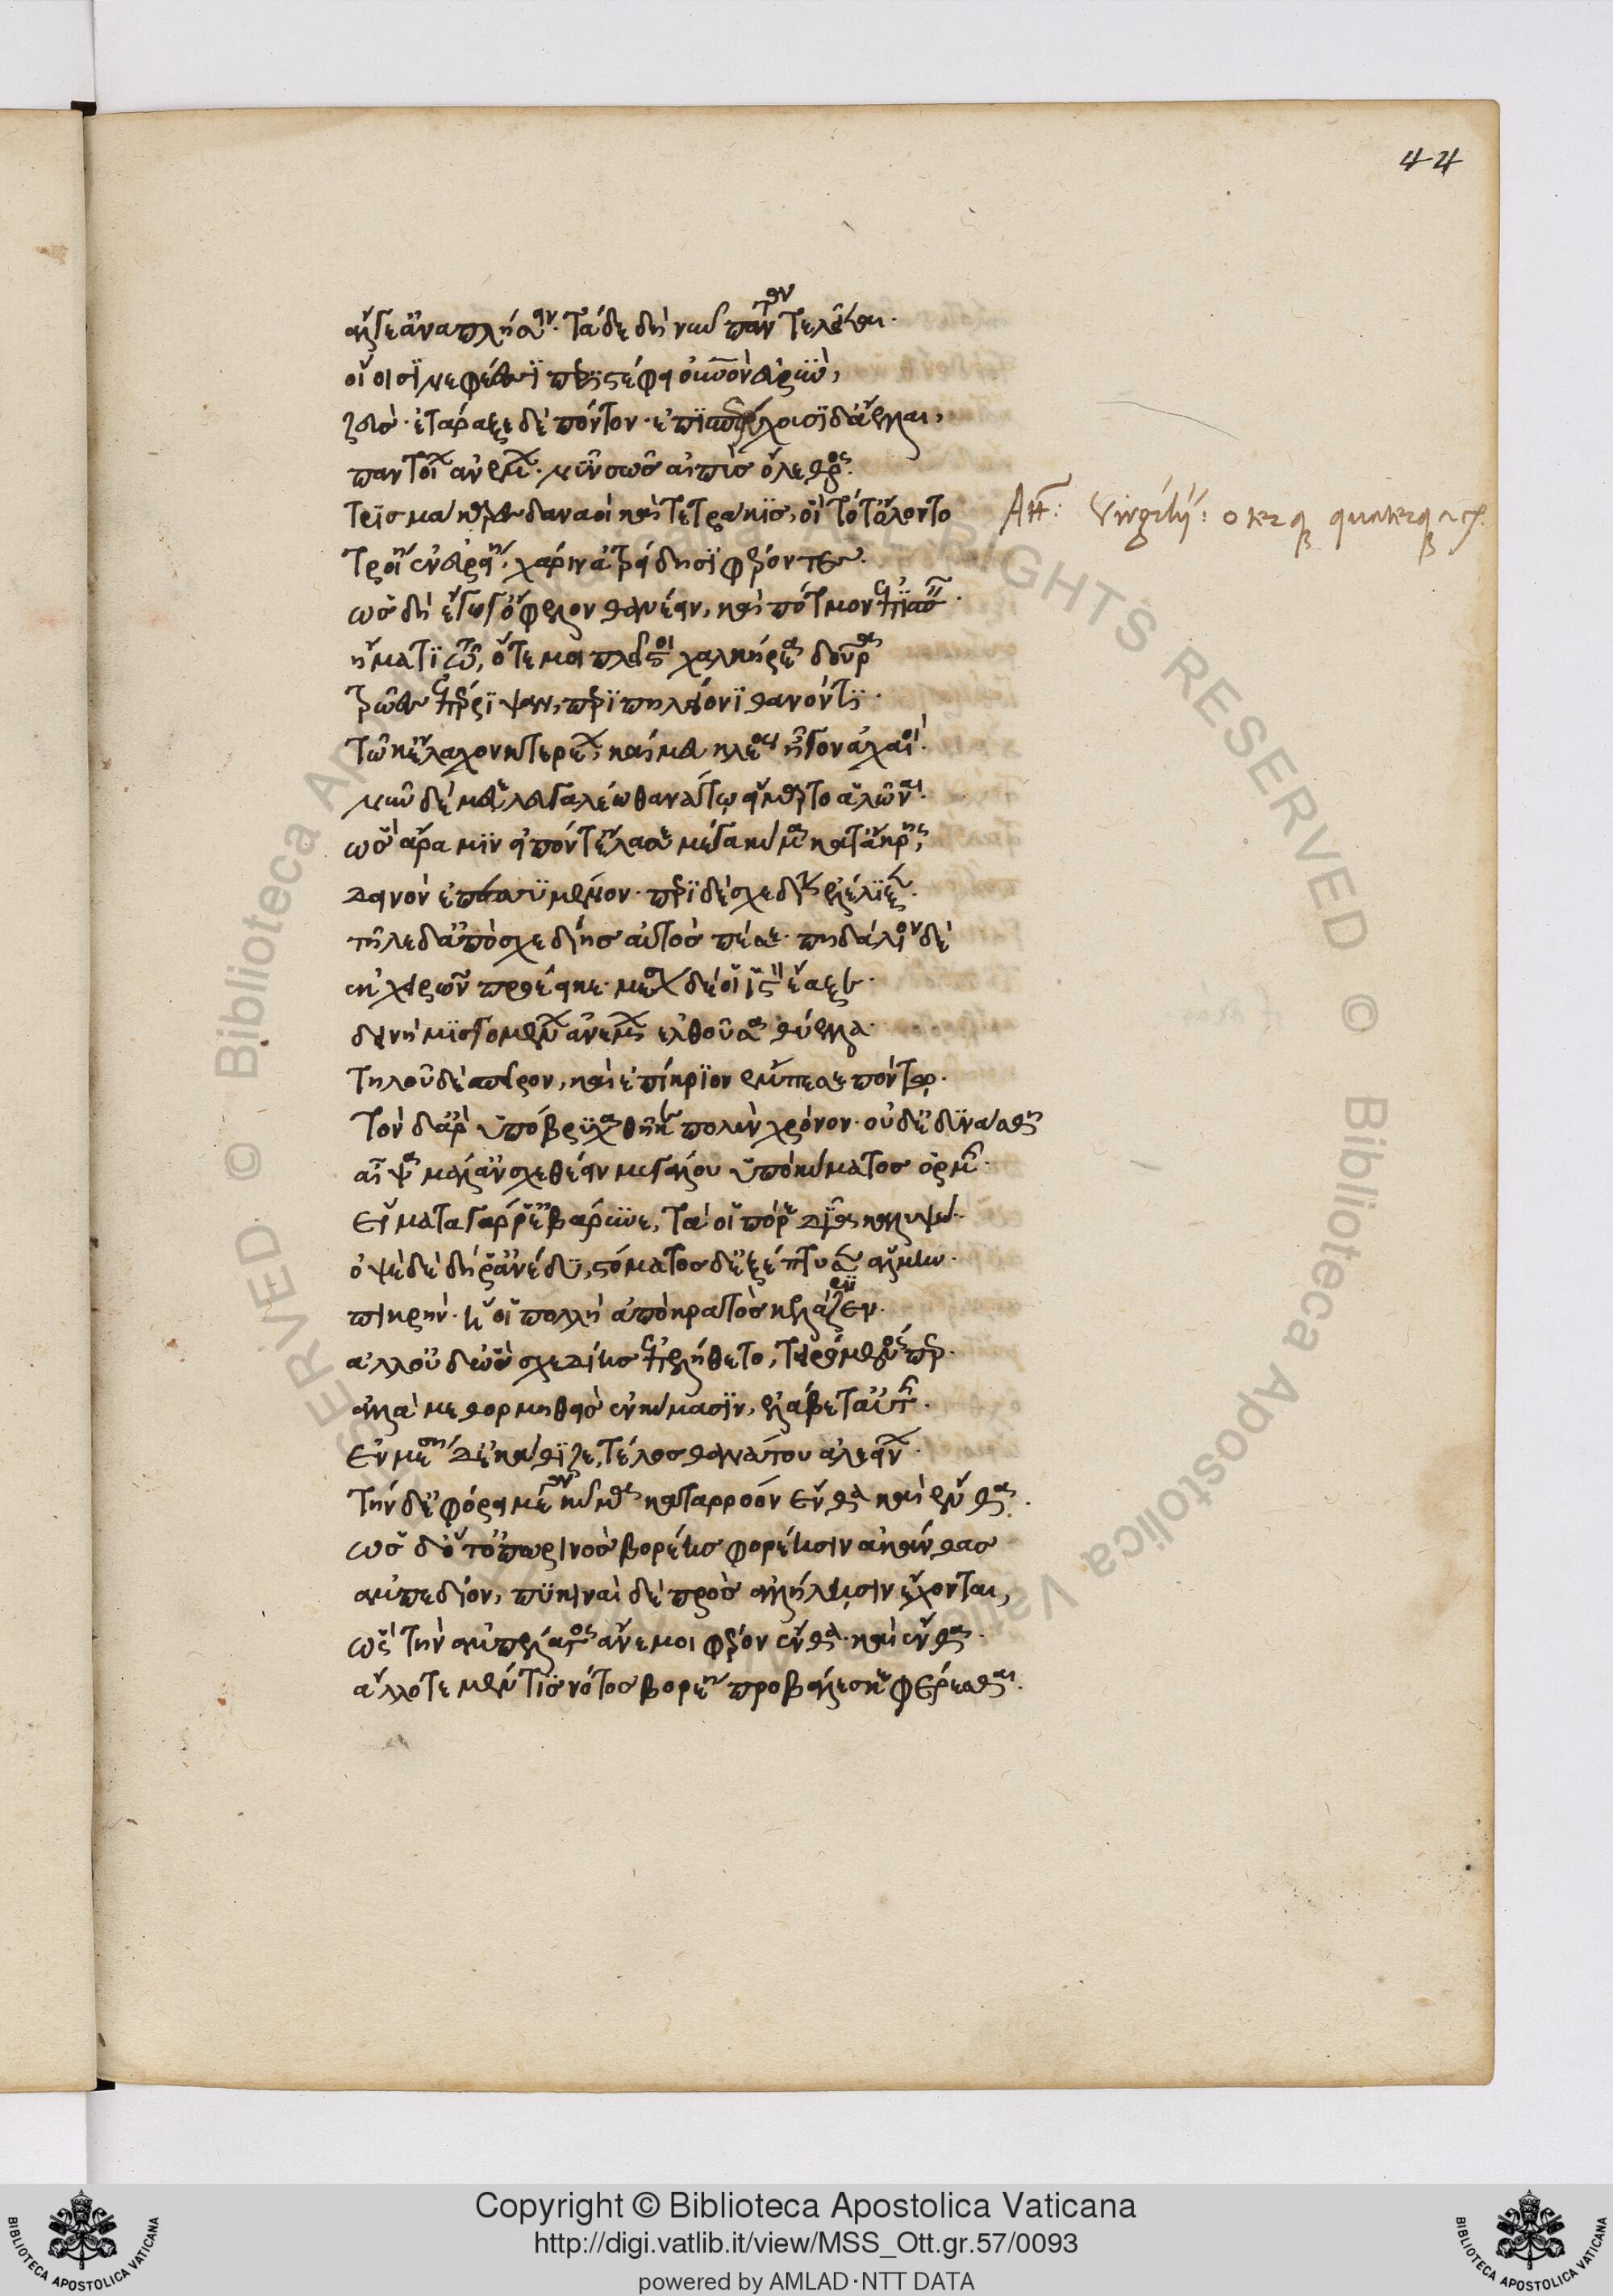 ἄλγε ἀναπλήσειν. τὰ δὲ δὴ νῦν πάντα τελεῖται.
οἵοισι νεφέεσσι περιστέφει οὐρανὸν εὐρὺν,
ζεὺσ. ἐτάραξε δὲ πόντον. ἐπισπέρχουσι δ' ἄελλαι,
παντοίων ἀνέμων. νῦν σῶσ αἰπὺσ ὄλεθρος.
τρὶσ μάκαρεσ δαναοὶ καὶ τετράκισ, οἳ τότ' ὄλοντο
τροίη ἐν εὐρείη, χάριν ἀτρείδησι φέροντεσ.
ὡσ δὴ ἔγωγ' ὄφελον θανέειν, καὶ πότμον ἐπισπεῖν.
ἤματι τῶ, ὅτε μοι πλεῖστοι χαλκήρεα δοῦρα
τρῶεσ ἐπέρριψαν, περὶ πηλείονι θανόντι.
τῶ κ' ἔλαχον κτερέων, καί μευ κλέοσ ἦγον ἀχαιοί.
νῦν δέ με λευγαλέω θανάτω εἵμαρτο ἁλῶναι.
ὣσ ἄρα μιν εἰπόντ' ἔλασε μέγα κῦμα κατ' ἄκρης,
δεινὸν ἐπεσσύμενον. περὶ δὲ σχεδίην ἐλέλιξεν.
τῆλε δ' ἀπὸ σχεδίησ αὐτὸσ πέσε. πηδάλιον δὲ
ἐκ χειρῶν προέηκε. μέσον δέ οἱ ἱστὸν ἔαξε.
δεινὴ μισγομένων ἀνέμων ἐλθοῦσα θύελλα.
τηλοῦ δὲ σπεῖρον, καὶ ἐπίκριον ἔμπεσε πόντω.
τὸν δ' ἄρ' ὑπόβρυχα θῆκε πολὺν χρόνον. οὐδὲ δυνάσθη
αἶψα μάλ' ἀνσχεθέειν μεγάλου ὑπὸ κύματοσ ὁρμῆς.
εἵματα γάρ ῥ' ἐβάρυνε, τά οἱ πόρε δῖα καλυψώ.
ὀψὲ δὲ δή ῥ' ἀνέδυ, στόματοσ δ' ἐξέπτυσεν ἅλμην.
πικρὴν. ἥ οἱ πολλὴ ἀπὸ κρατὸσ κελάρυζεν.
ἀλλ' οὐδ' ὧσ σχεδίησ ἐπελήθετο, τειρόμενός περ.
ἀλλὰ μεθορμηθεὶσ ἐν κύμασιν, ἐλλάβετ' αὐτῆς.
ἐν μέση δὲ καθῖζε, τέλοσ θανάτου ἀλεείνων.
τὴν δ' ἐφόρει μέγα κῦμα κατὰ ρόον ἔνθα καὶ ἔνθα.
ὡσ δ' ὅτ' ὀπωρινὸσ βορέησ φορέησιν ἀκάνθασ
ἀμπεδίον, πυκιναὶ δὲ πρὸσ ἀλλήλησιν ἔχονται,
ὣσ τὴν ἀμπέλαγος ἄνεμοι φέρον ἔνθα καὶ ἔνθα.
ἄλλοτε μέν τισ νότοσ βορέη προβάλεσκε φέρεσθαι.
Att: Virgilij: o terq quaterq
44
Copyright © Biblioteca Apostolica Vaticana
http://digi.vatlib.it/view/MSS_Ott.gr.57/0093
powered by AMLAD·NTT DATA